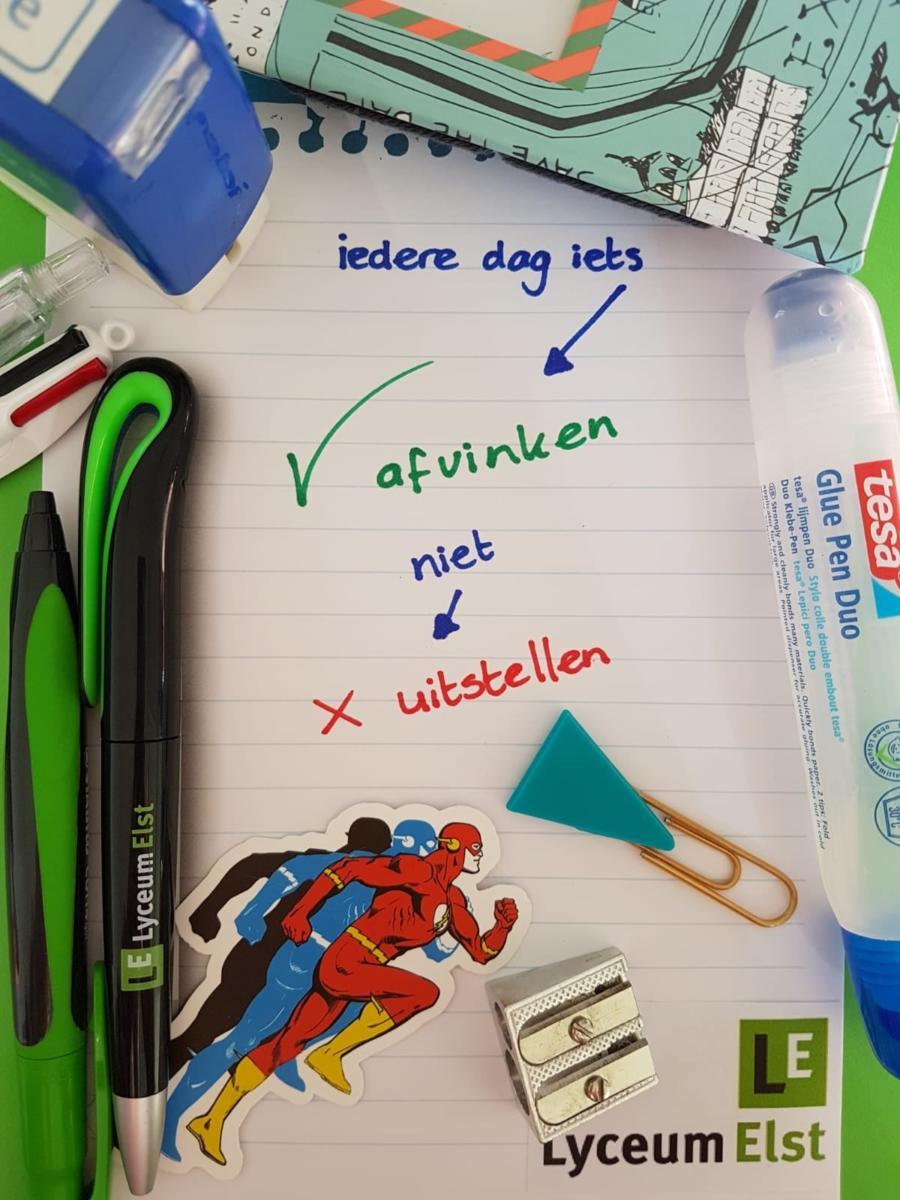 SAVE THE DATE
iedere dag iets
afvinken
niet
uitstellen
tesa
Glue Pen Duo
tesa® lijmpen Duo Stylo colle double embout tesa®
Duo Klebe-Pen tesa® Lepicí pero Duo
Strongly and cleanly bonds many materials. Quickly bonds paper. 2 tips: Fold
LE Lyceum Elst
LE
Lyceum Elst